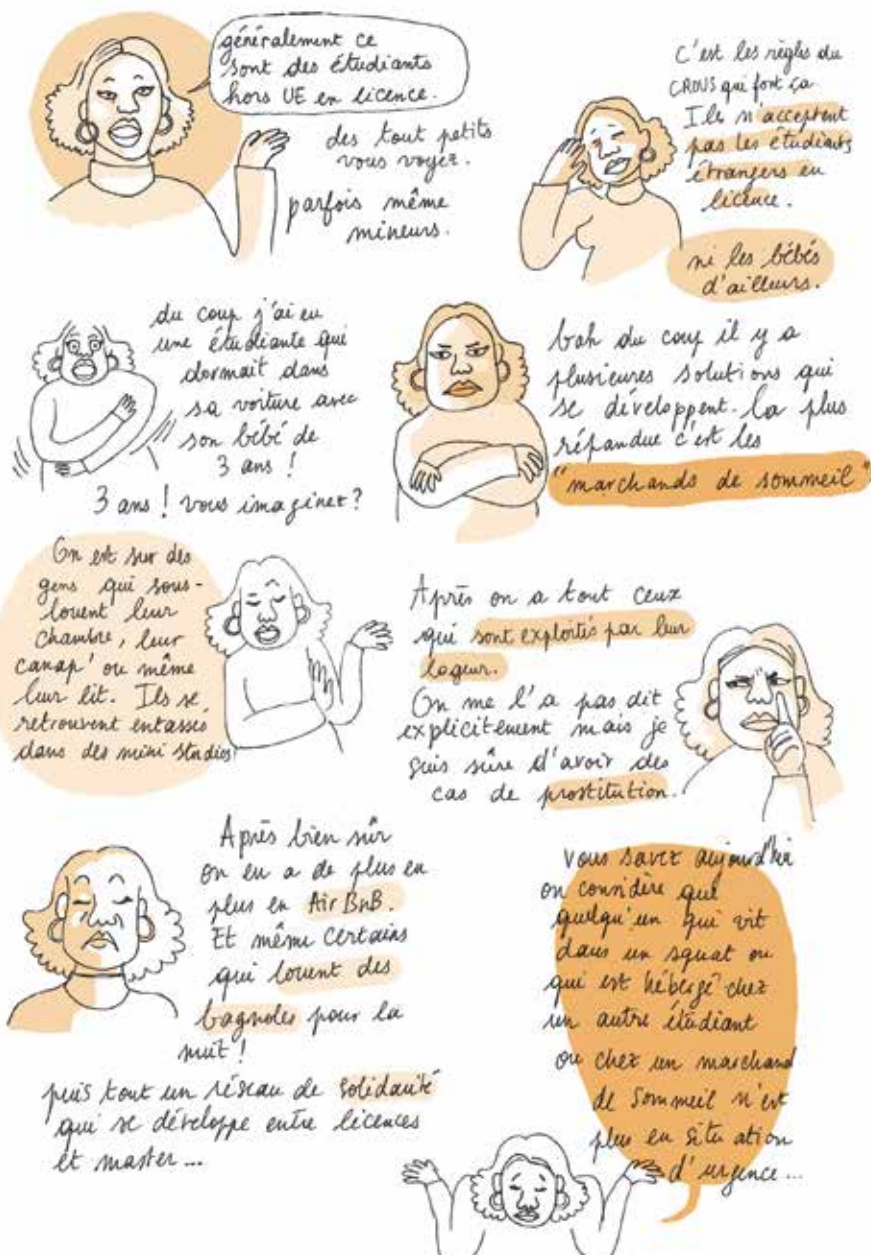 généralement ce
sont des étudiants
hors UE en licence.
des tout petits
vous voyez.
parfois même
mineurs.
C'est les règles du
CROUS qui font ça.
Ils n'acceptent
pas les étudiants
étrangers en
licence.
ni les bébés
d'ailleurs.
du coup j'ai eu
une étudiante qui
dormait dans
sa voiture avec
son bébé de
3 ans !
3 ans ! vous imaginez ?
bah du coup il y a
plusieures solutions qui
se développent. la plus
répandue c'est les
"marchands de sommeil"
On est sur des
gens qui sous-
louent leur
chambre, leur
canap' ou même
leur lit. Ils se
retrouvent entassés
dans des mini studios
Après on a tout ceux
qui sont exploités par leur
logeur.
On me l'a pas dit
explicitement mais je
suis sûre d'avoir des
cas de prostitution.
Après bien sûr
on en a de plus en
plus en Air BnB.
Et même certains
qui louent des
bagnoles pour la
nuit !
puis tout un réseau de solidarité
qui se développe entre licences
et master...
Vous savez aujourd'hui
on considère que
quelqu'un qui vit
dans un squat ou
qui est hébergé chez
un autre étudiant
ou chez un marchand
de sommeil n'est
plus en situation
d'urgence...